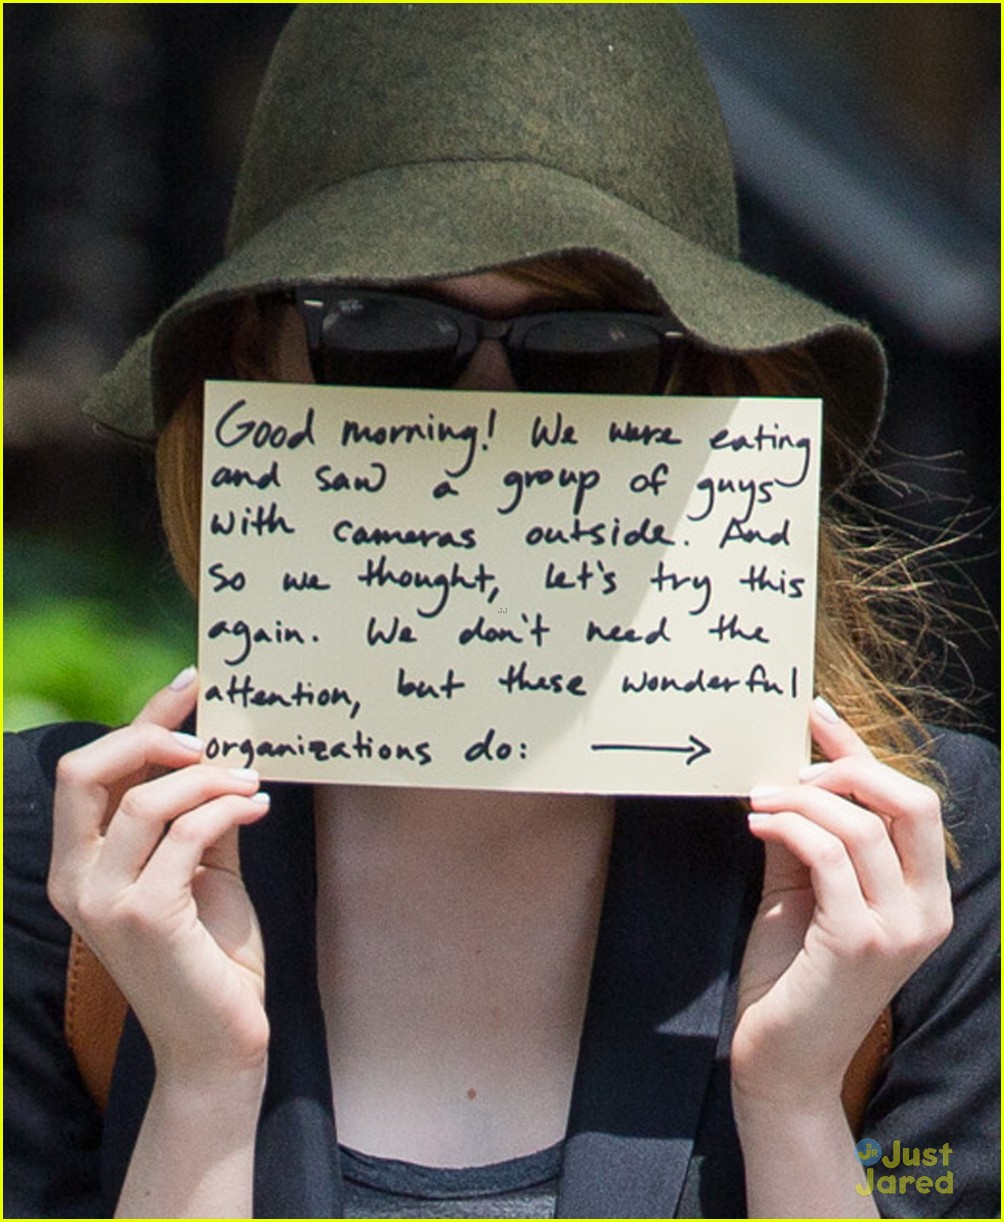 Good morning! We were eating
and saw a group of guys
with cameras outside. And
so we thought, let's try this
again. We don't need the
attention, but these wonderful
organizations do: →
JJ
JR Just
Jared